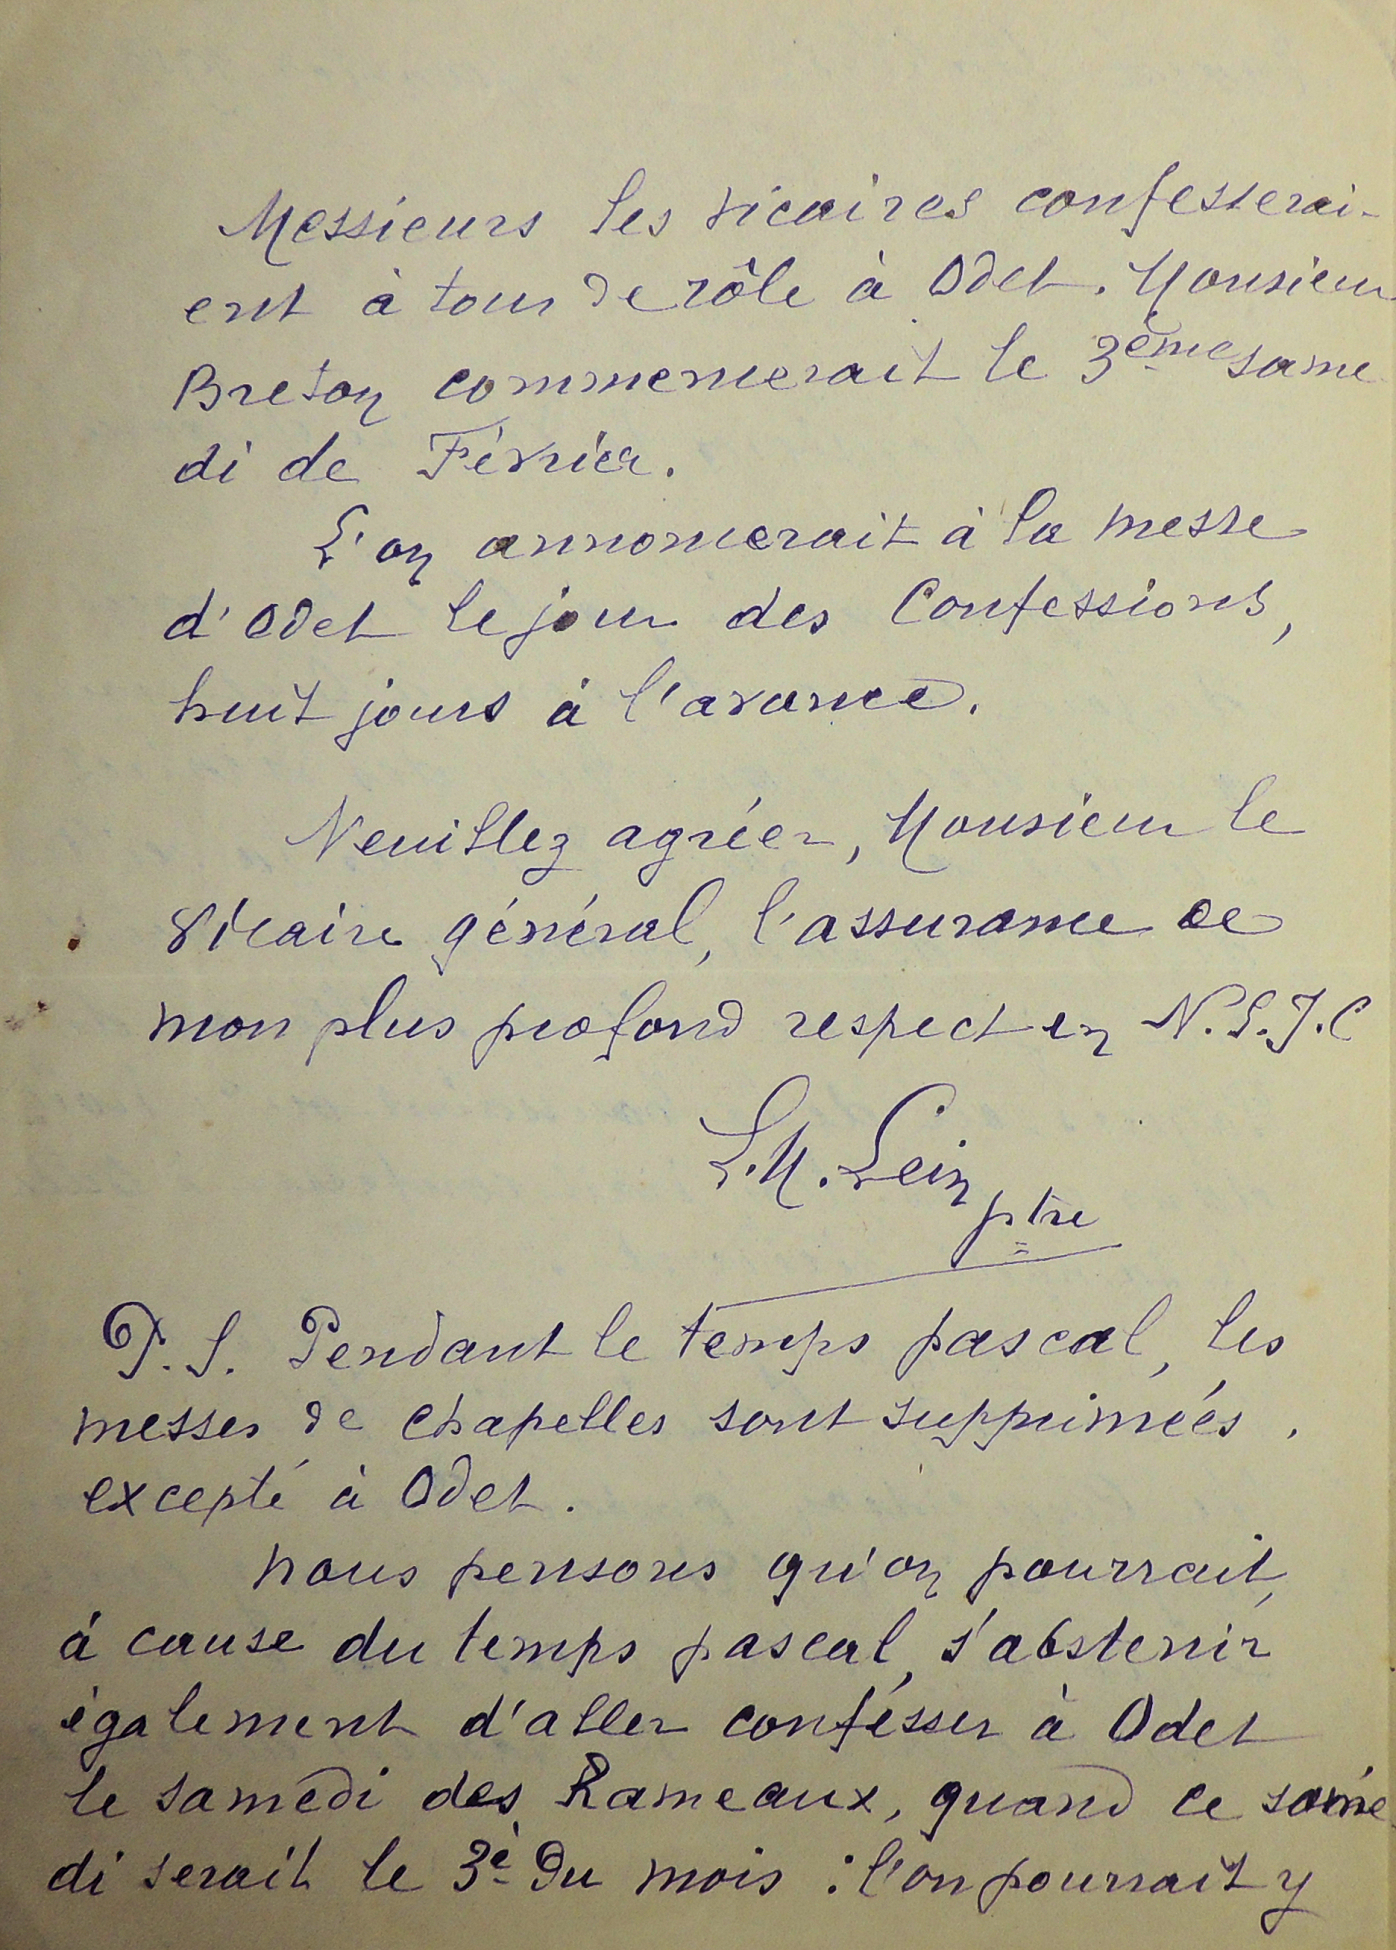 Messieurs les vicaires confesserai-
ent à tour de rôle à Odet. Monsieur
Breton commencerait le 3ème same
di de Février.
L'on annoncerait à la messe
d'Odet le jour des Confessions,
huit jours à l'avance.
Veuillez agréer, Monsieur le
Vicaire général, l'assurance de
mon plus profond respect en N.S.J.C
L.M. Lein
ptre
P.S. Pendant le temps pascal, les
messes de chapelles sont supprimées,
excepté à Odet.
nous pensons qu'on pourrait,
à cause du temps pascal, s'abstenir
également d'aller confesser à Odet
le samedi des Rameaux, quand ce same-
di serait le 3è du mois : l'on pourrait y